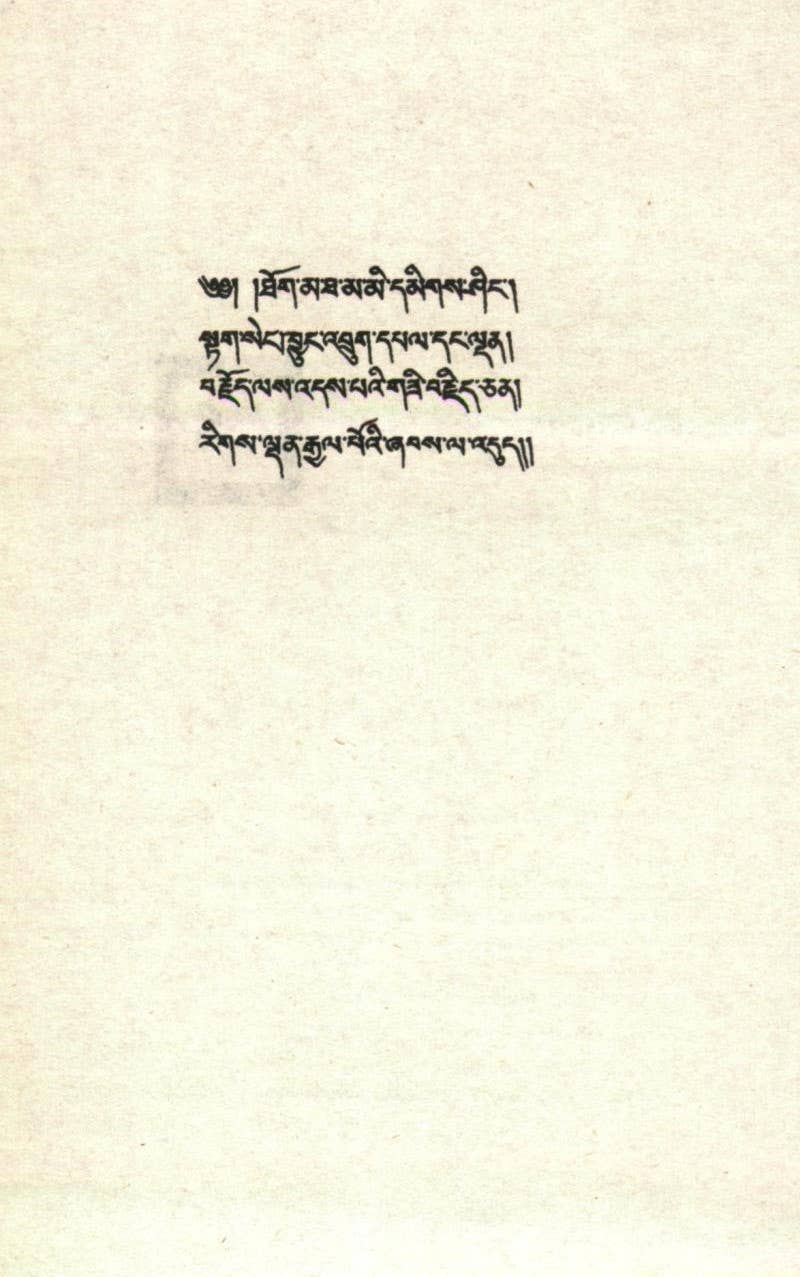 ༄༅། །ཐོག་མ་ཐ་མ་མི་དམིགས་ཤིང་།
སྟག་སེང་ཁྱུང་འབྲུག་དཔལ་དང་ལྡན།
བརྗོད་ལས་འདས་པའི་གཟི་བརྗིད་ཅན།
རིགས་ལྡན་རྒྱལ་པོའི་ཞབས་ལ་འདུད།།